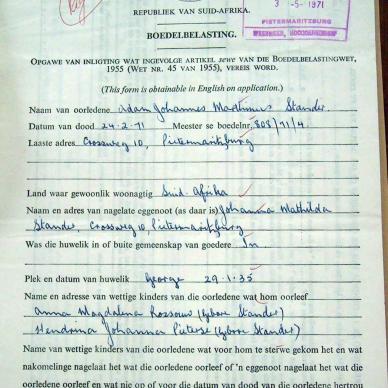 REPUBLIEK VAN SUID-AFRIKA.
3 -5- 1971
PIETERMARITZBURG
BOEDELBELASTING.
OPGAWE VAN INLIGTING WAT INGEVOLGE ARTIKEL sewe VAN DIE BOEDELBELASTINGWET,
1955 (WET NR. 45 VAN 1955), VEREIS WORD.
(This form is obtainable in English on application.)
Naam van oorledene Adam Johannes Martinus Stander
Datum van dood 24-2-71 Meester se boedelnr. 808/71/4
Laaste adres Crossweg 10, Pietermaritzburg
Land waar gewoonlik woonagtig Suid-Afrika
Naam en adres van nagelate eggenoot (as daar is) Johanna Mathilda
Stander, Crossweg 10, Pietermaritzburg
Was die huwelik in of buite gemeenskap van goedere? In
Plek en datum van huwelik George 29-1-35
Name en adresse van wettige kinders van die oorledene wat hom oorleef
Anna Magdalena Rossouw (gebore Stander)
Hendrina Johanna Pieterse (gebore Stander)
Name van wettige kinders van die oorledene wat voor hom te sterwe gekom het en wat
nakomelinge nagelaat het wat die oorledene of 'n eggenoot nagelaat het wat die
oorledene oorleef en wat nie op of voor die datum van dood van die oorledene hertrou